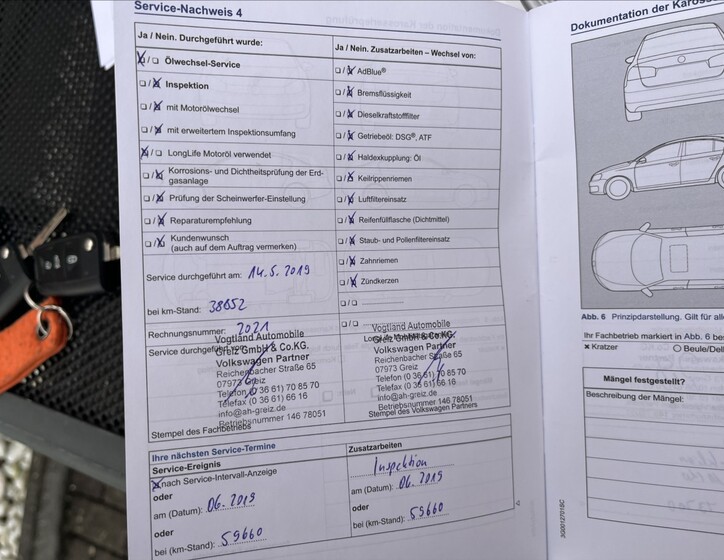 Service-Nachweis 4
Ja / Nein. Durchgeführt wurde:
Ölwechsel-Service
Inspektion
mit Motorölwechsel
mit erweitertem Inspektionsumfang
LongLife Motoröl verwendet
Korrosions- und Dichtheitsprüfung der Erd-
gasanlage
Prüfung der Scheinwerfer-Einstellung
Reparaturempfehlung
Kundenwunsch
(auch auf dem Auftrag vermerken)
Service durchgeführt am: 14.5.2019
bei km-Stand: 38652
Rechnungsnummer: 2021
Service durchgeführt
Vogtland Automobile
Greiz GmbH & Co.KG.
Volkswagen Partner
Reichenbacher Straße 65
07973 Greiz
Telefon (0 36 61) 70 85 70
Telefax (0 36 61) 66 16
info@ah-greiz.de
Betriebsnummer 146 78051
Stempel des Fachbetriebs
Ja / Nein. Zusatzarbeiten – Wechsel von:
AdBlue®
Bremsflüssigkeit
Dieselkraftstofffilter
Getriebeöl: DSG®, ATF
Haldexkupplung: Öl
Keilrippenriemen
Luftfiltereinsatz
Reifenfüllflasche (Dichtmittel)
Staub- und Pollenfiltereinsatz
Zahnriemen
Zündkerzen
Vogtland Automobile
Greiz GmbH & Co.KG.
Volkswagen Partner
Reichenbacher Straße 65
07973 Greiz
Telefon (0 36 61) 70 85 70
Telefax (0 36 61) 66 16
info@ah-greiz.de
Betriebsnummer 146 78051
Stempel des Volkswagen Partners
Ihre nächsten Service-Termine
Service-Ereignis
nach Service-Intervall-Anzeige
oder
am (Datum): 06.2019
oder
bei (km-Stand): 59660
Zusatzarbeiten
Inspektion
am (Datum): 06.2019
oder
bei (km-Stand): 59660
Dokumentation der
Abb. 6 Prinzipdarstellung. Gilt für
Ihr Fachbetrieb markiert in Abb. 6
× Kratzer
Mängel festgestellt?
Beschreibung der Mängel: